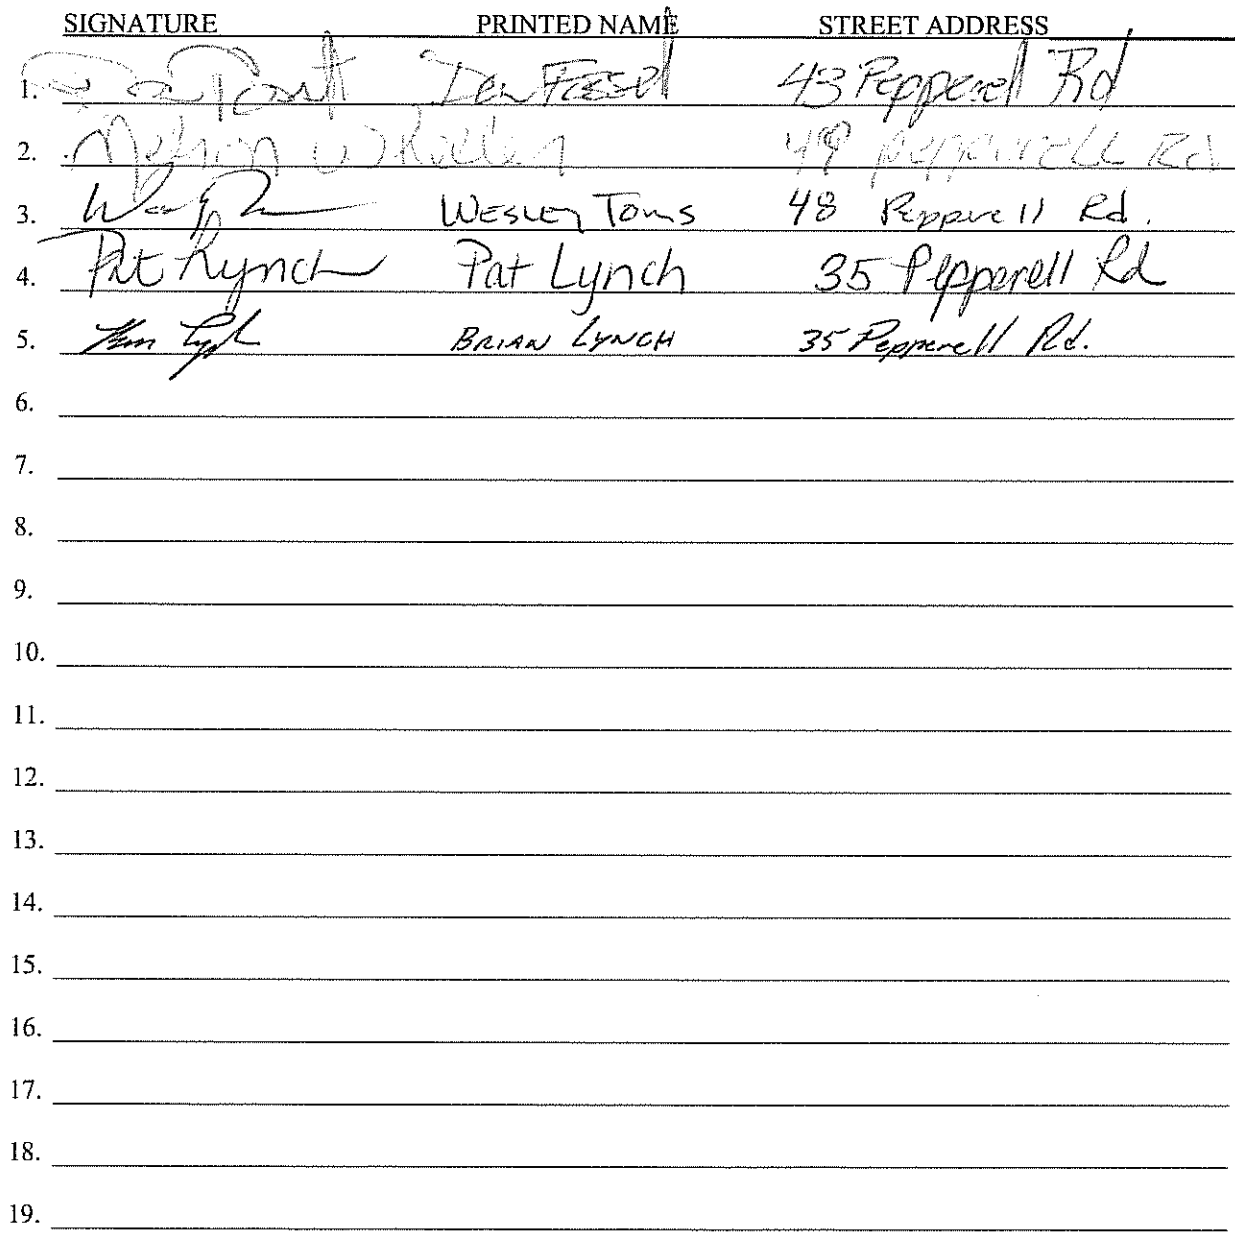 SIGNATURE PRINTED NAME STREET ADDRESS
1. 43 Pepperell Rd
2. 48 Pepperell Rd
3. WESLEY Toms 48 Pepperell Rd.
4. Pat Lynch Pat Lynch 35 Pepperell Rd
5. BRIAN LYNCH 35 Pepperell Rd.
6.
7.
8.
9.
10.
11.
12.
13.
14.
15.
16.
17.
18.
19.